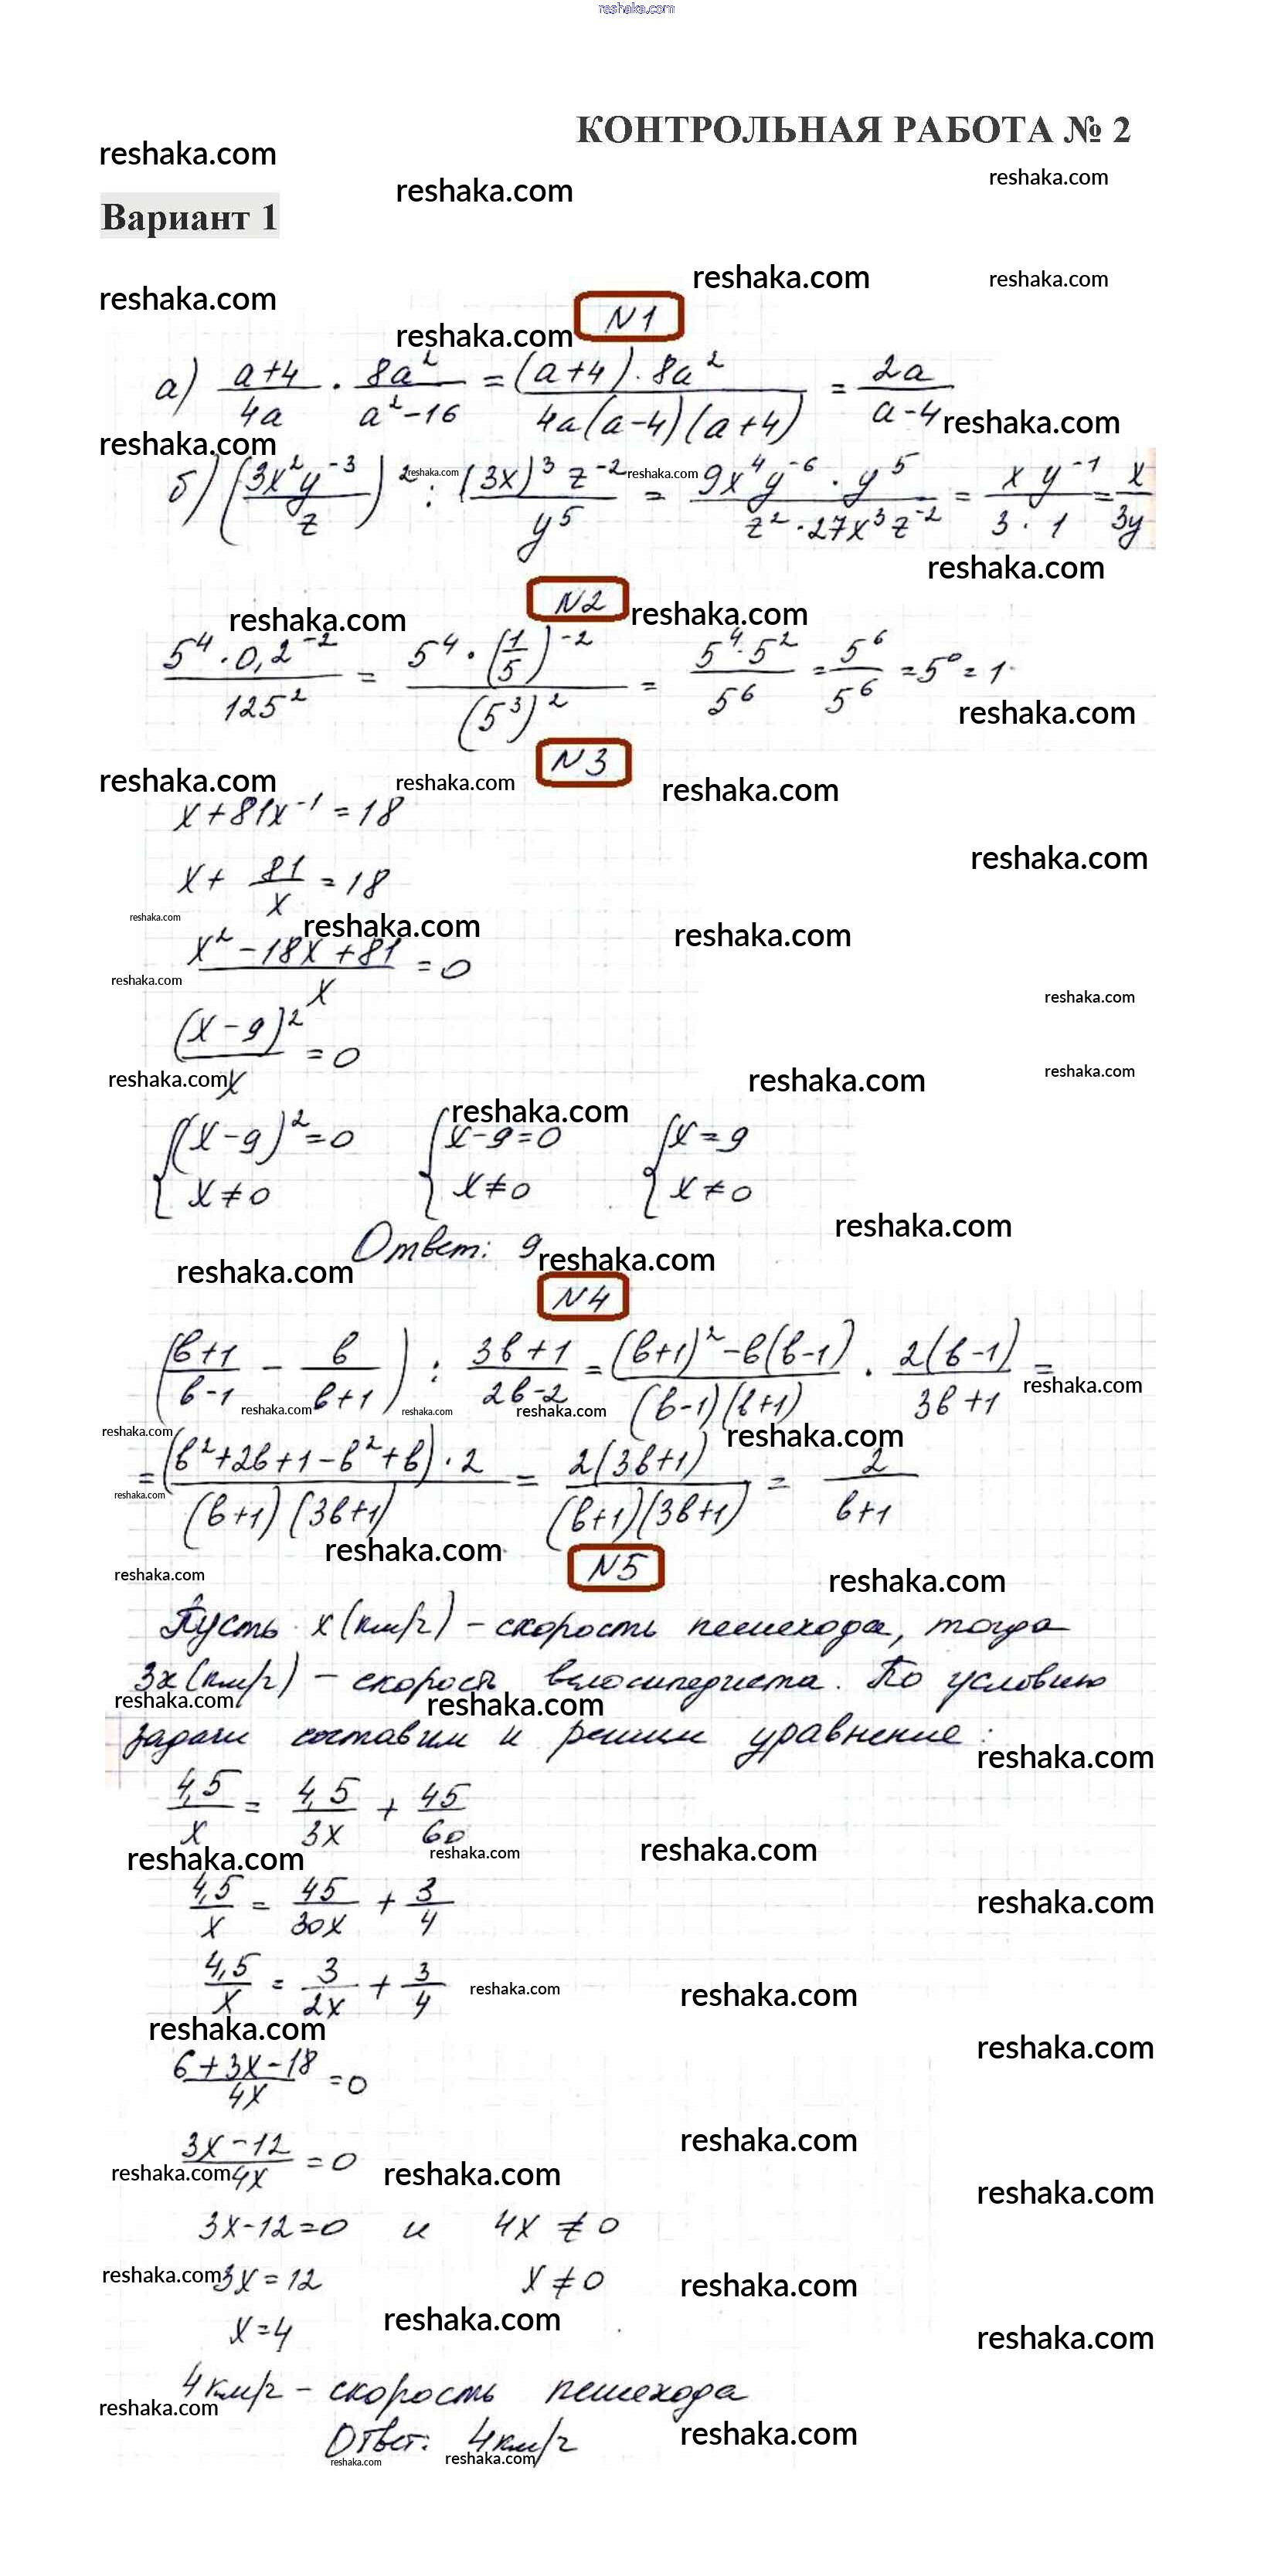 reshaka.com
КОНТРОЛЬНАЯ РАБОТА № 2
reshaka.com
reshaka.com
reshaka.com
Вариант 1
reshaka.com
reshaka.com
reshaka.com
N1
reshaka.com
а) (a+4)/(4a) · (8a²)/(a²-16) = ((a+4)·8a²)/(4a(a-4)(a+4)) = 2a/(a-4)
reshaka.com
reshaka.com
б) ((3x²y⁻³)/z)² : ((3x)³z⁻²)/y⁵ = (9x⁴y⁻⁶·y⁵)/(z²·27x³z⁻²) = (xy⁻¹)/(3·1) = x/3y
reshaka.com
reshaka.com
reshaka.com
N2
reshaka.com
reshaka.com
(5⁴·0,2⁻²)/125² = (5⁴·(1/5)⁻²)/(5³)² = (5⁴·5²)/5⁶ = 5⁶/5⁶ = 5⁰ = 1
reshaka.com
N3
reshaka.com
reshaka.com
reshaka.com
x+81x⁻¹=18
reshaka.com
x+81/x=18
reshaka.com
reshaka.com
reshaka.com
(x²-18x+81)/x=0
reshaka.com
reshaka.com
(x-9)²/x=0
reshaka.com
reshaka.com
reshaka.com
reshaka.com
{(x-9)²=0 {x-9=0 {x=9
x≠0 x≠0 x≠0
reshaka.com
Ответ: 9
reshaka.com
reshaka.com
N4
((в+1)/(в-1) - в/(в+1)) : (3в+1)/(2в-2) = ((в+1)²-в(в-1))/((в-1)(в+1)) · 2(в-1)/(3в+1) =
reshaka.com
reshaka.com
reshaka.com
reshaka.com
reshaka.com
reshaka.com
=((в²+2в+1-в²+в)·2)/((в+1)(3в+1)) = 2(3в+1)/((в+1)(3в+1)) = 2/(в+1)
reshaka.com
reshaka.com
N5
reshaka.com
reshaka.com
Пусть x(км/г) – скорость пешехода, тогда
3x(км/г) – скорость велосипедиста. По условию
reshaka.com
reshaka.com
задачи составим и решим уравнение:
reshaka.com
4,5/x = 4,5/3x + 45/60
reshaka.com
reshaka.com
reshaka.com
4,5/x = 45/30x + 3/4
reshaka.com
4,5/x = 3/2x + 3/4
reshaka.com
reshaka.com
reshaka.com
reshaka.com
(6+3x-18)/4x=0
reshaka.com
(3x-12)/4x=0
reshaka.com
reshaka.com
reshaka.com
3x-12=0 и 4x≠0
reshaka.com
3x=12 x≠0
reshaka.com
x=4
reshaka.com
reshaka.com
4км/г – скорость пешехода
reshaka.com
Ответ: 4км/г
reshaka.com
reshaka.com
reshaka.com